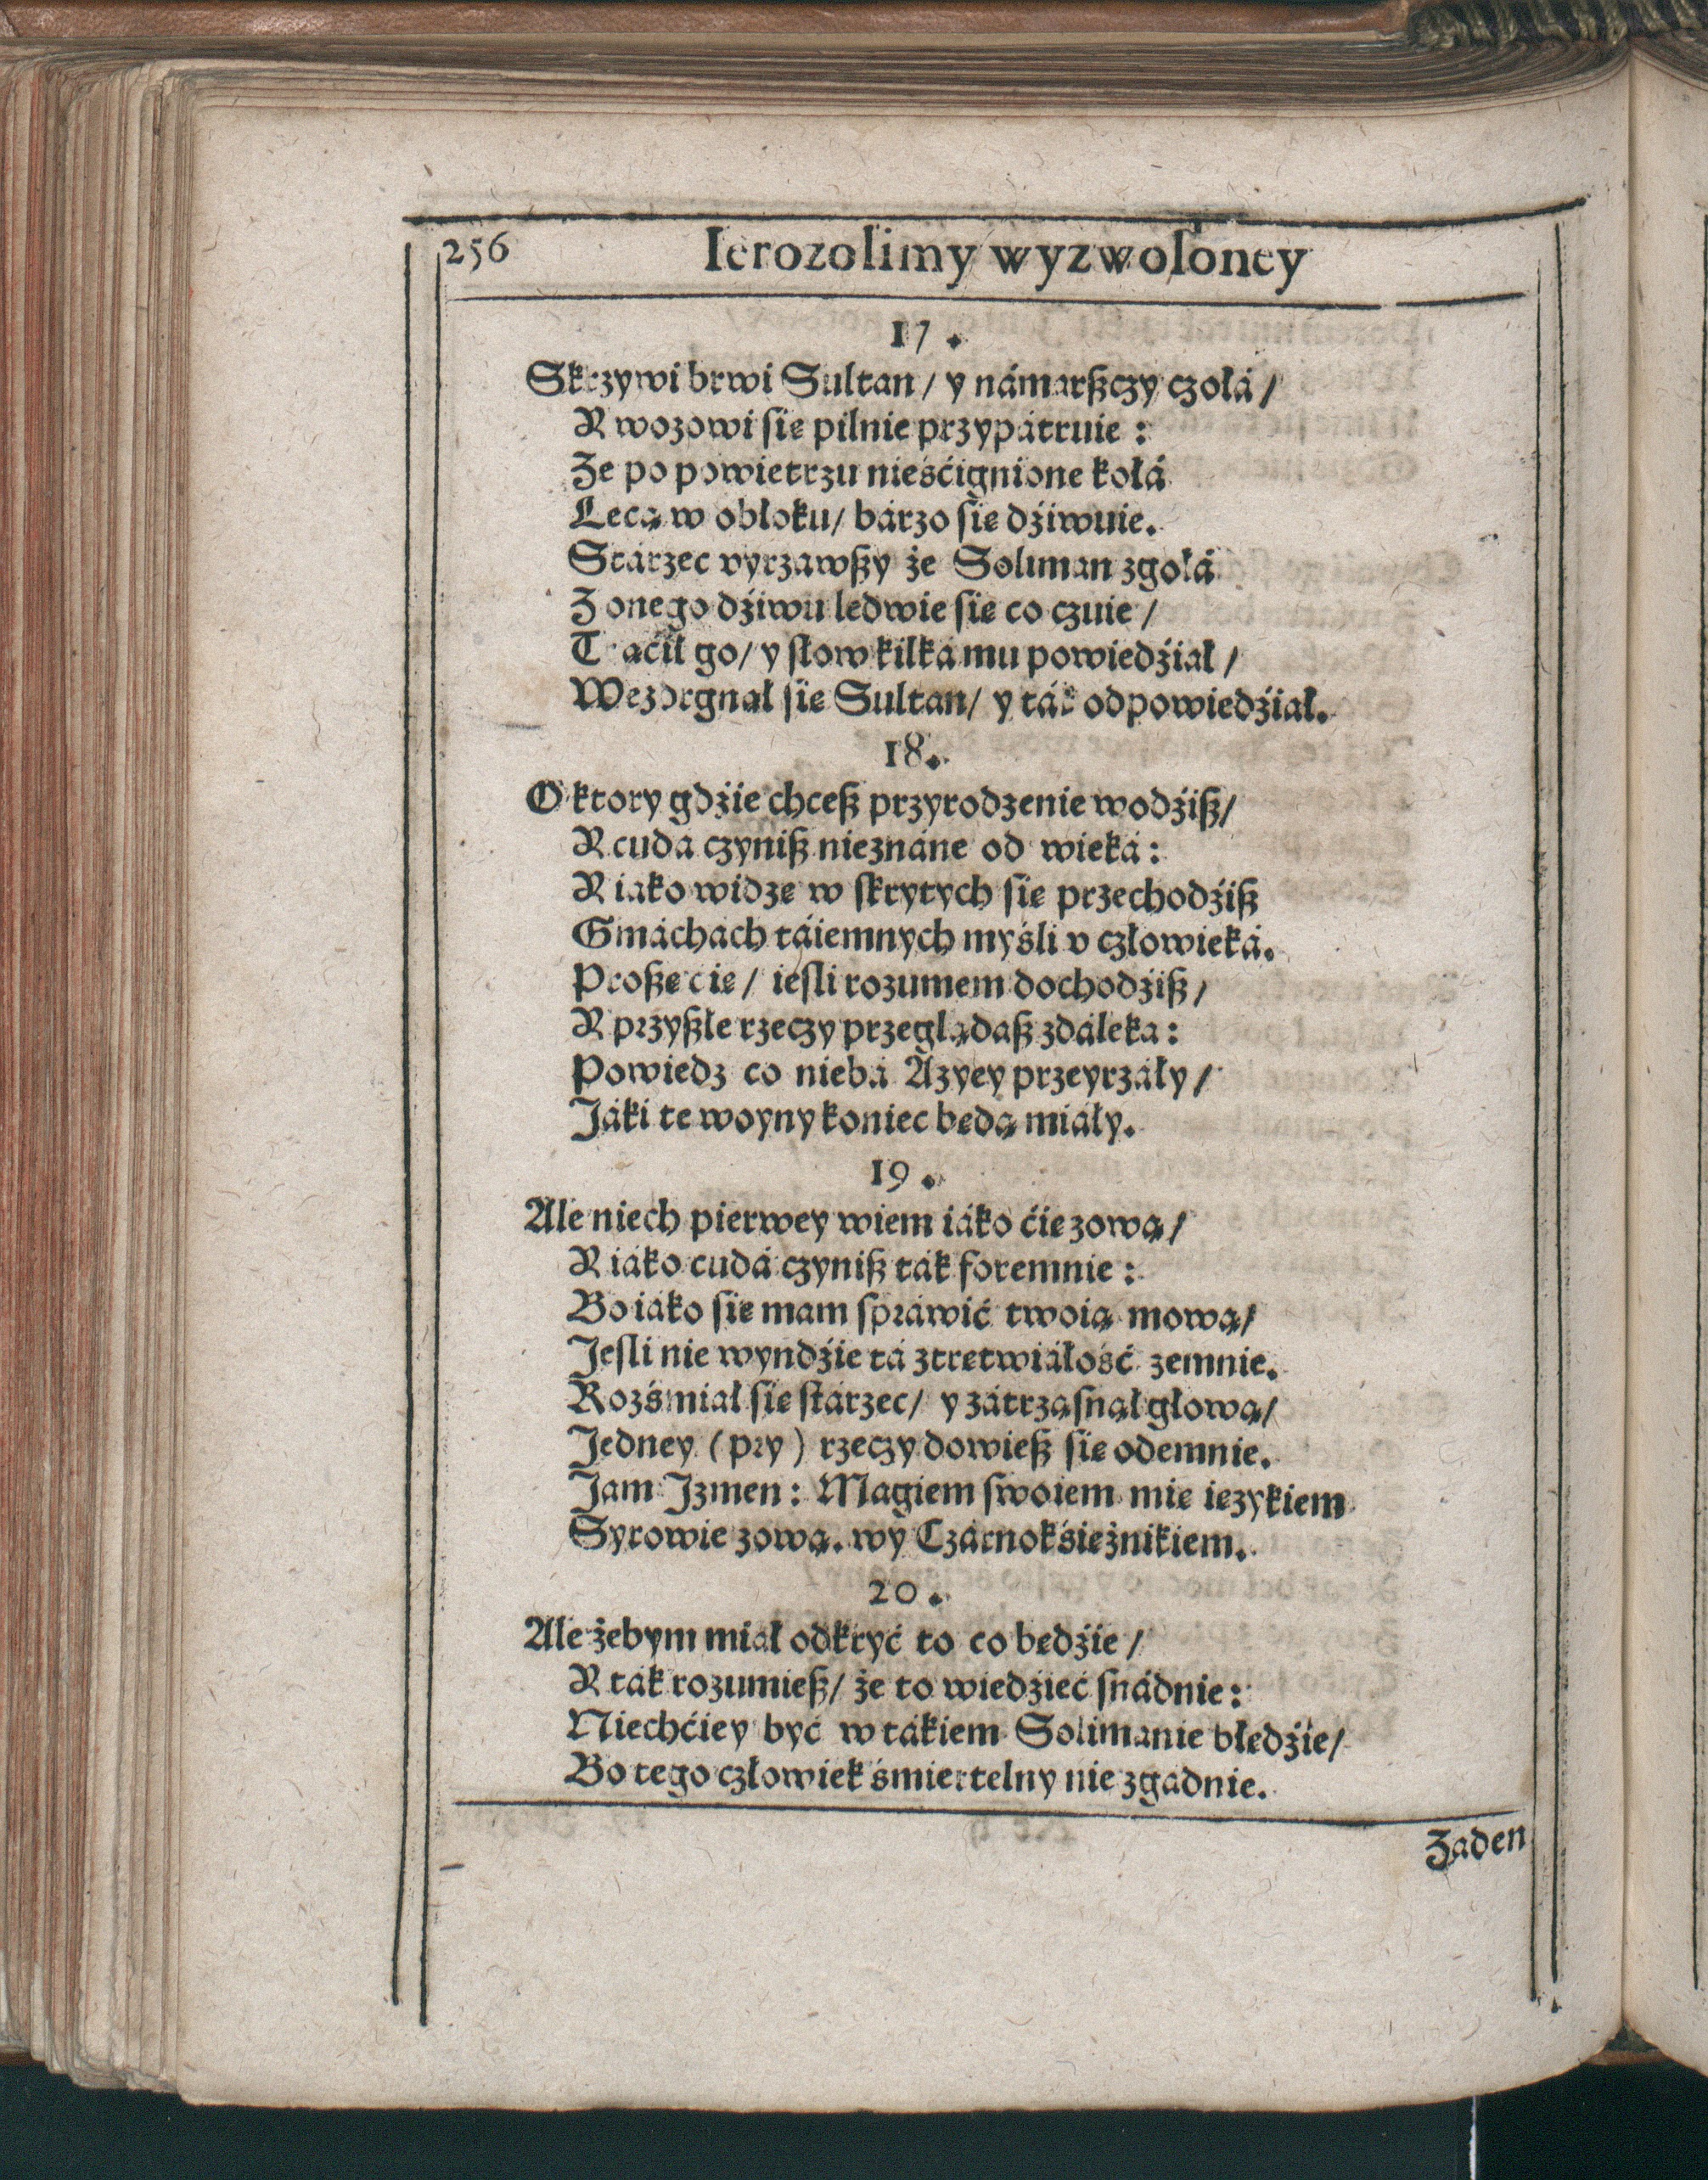 256 Ierozolimy wyzwoloney
17.
Skrzywi brwi Sultan/ y námarßczy czołá/
Y wozowi się pilnie przypátruie:
Że po powietrzu nieśćignione kołá
Lecą w obłoku/ bárzo się dźiwuie.
Stárzec vyrzawßy że Soliman zgołá
Z onego dźiwu ledwie się co czuie/
Trącił go/ y słow kilká mu powiedźiał/
Wezdrgnął się Sultan/ y ták odpowiedźiał.
18.
O ktory gdźie chceß przyrodzenie wodźiß/
Y cudá czyniß nieznáne od wieká:
Y iáko widzę w skrytych się przechodźiß
Gmáchách táiemnych myśli v człowieká.
Proßę cię/ iesli rozumem dochodźiß/
Y przyßłe rzeczy przeglądaß zdáleká:
Powiedz co niebá Azyey przeyrzáły/
Jáki te woyny koniec będą miáły.
19.
Ale niech pierwey wiem iáko ćię zową/
Y iáko cudá czyniß ták foremnie:
Bo iáko się mam spráwić twoią mową/
Jesli nie wyndźie tá ztrętwiáłość zemnie.
Rozśmiał się stárzec/ y zátrząsnął głową/
Jedney (pry) rzeczy dowieß się odemnie.
Jam Jzmen: Magiem swoiem mię ięzykiem
Syrowie zową. wy Czárnokśiężnikiem.
20.
Ale żebym miał odkryć to co będźie/
Y ták rozumieß/ że to wiedźieć snádnie:
Niechćiey być w tákiem Solimanie błędźie/
Bo tego człowiek śmiertelny nie zgádnie.
Żaden